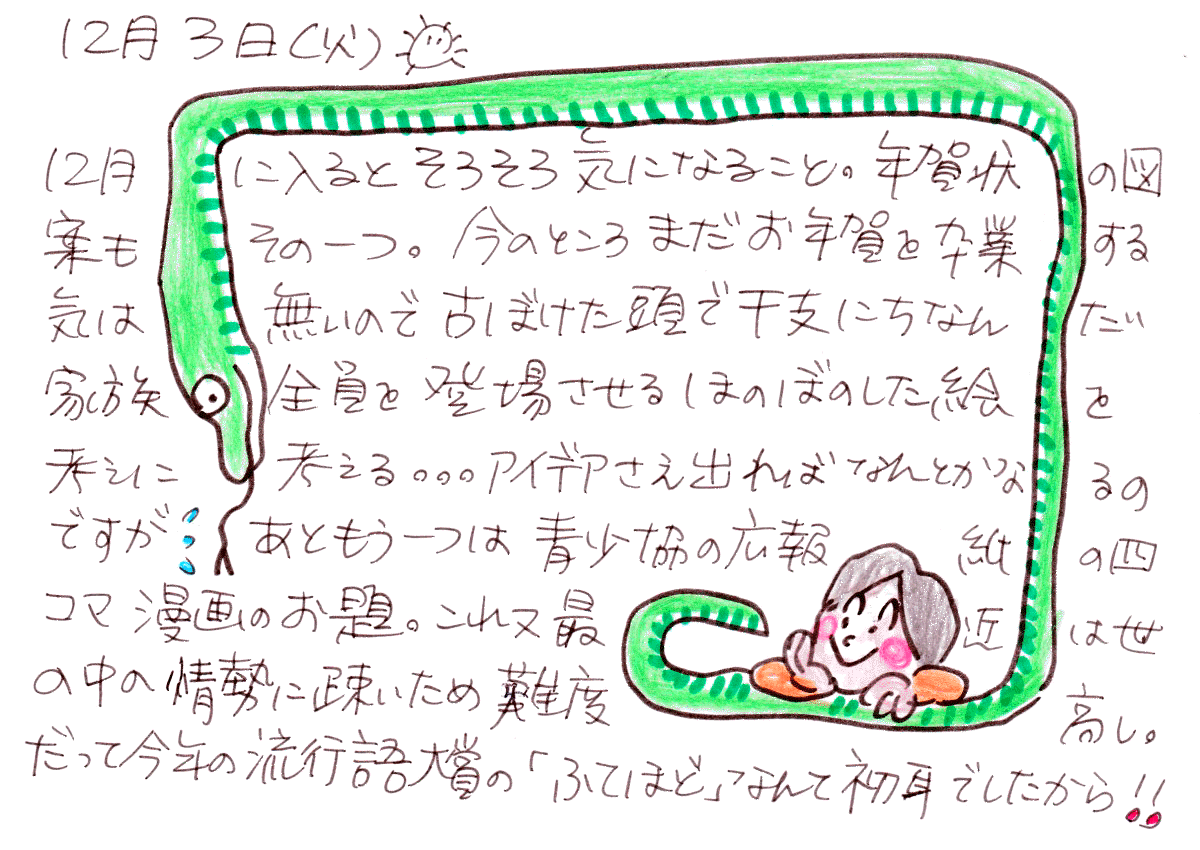 12月3日(火)
12月に入るとそろそろ気になること。年賀状の図
案もその一つ。今のところまだお年賀を卒業する
気は無いので古ぼけた頭で干支にちなんだ
家族全員を登場させるほのぼのした絵を
考えに考える。。。アイデアさえ出ればなんとかなるの
ですがあともう一つは青少協の広報紙の四
コマ漫画のお題。これ又最近は世
の中の情勢に疎いため難度高し。
だって今年の流行語大賞の「ふてほど」なんて初耳でしたから!!